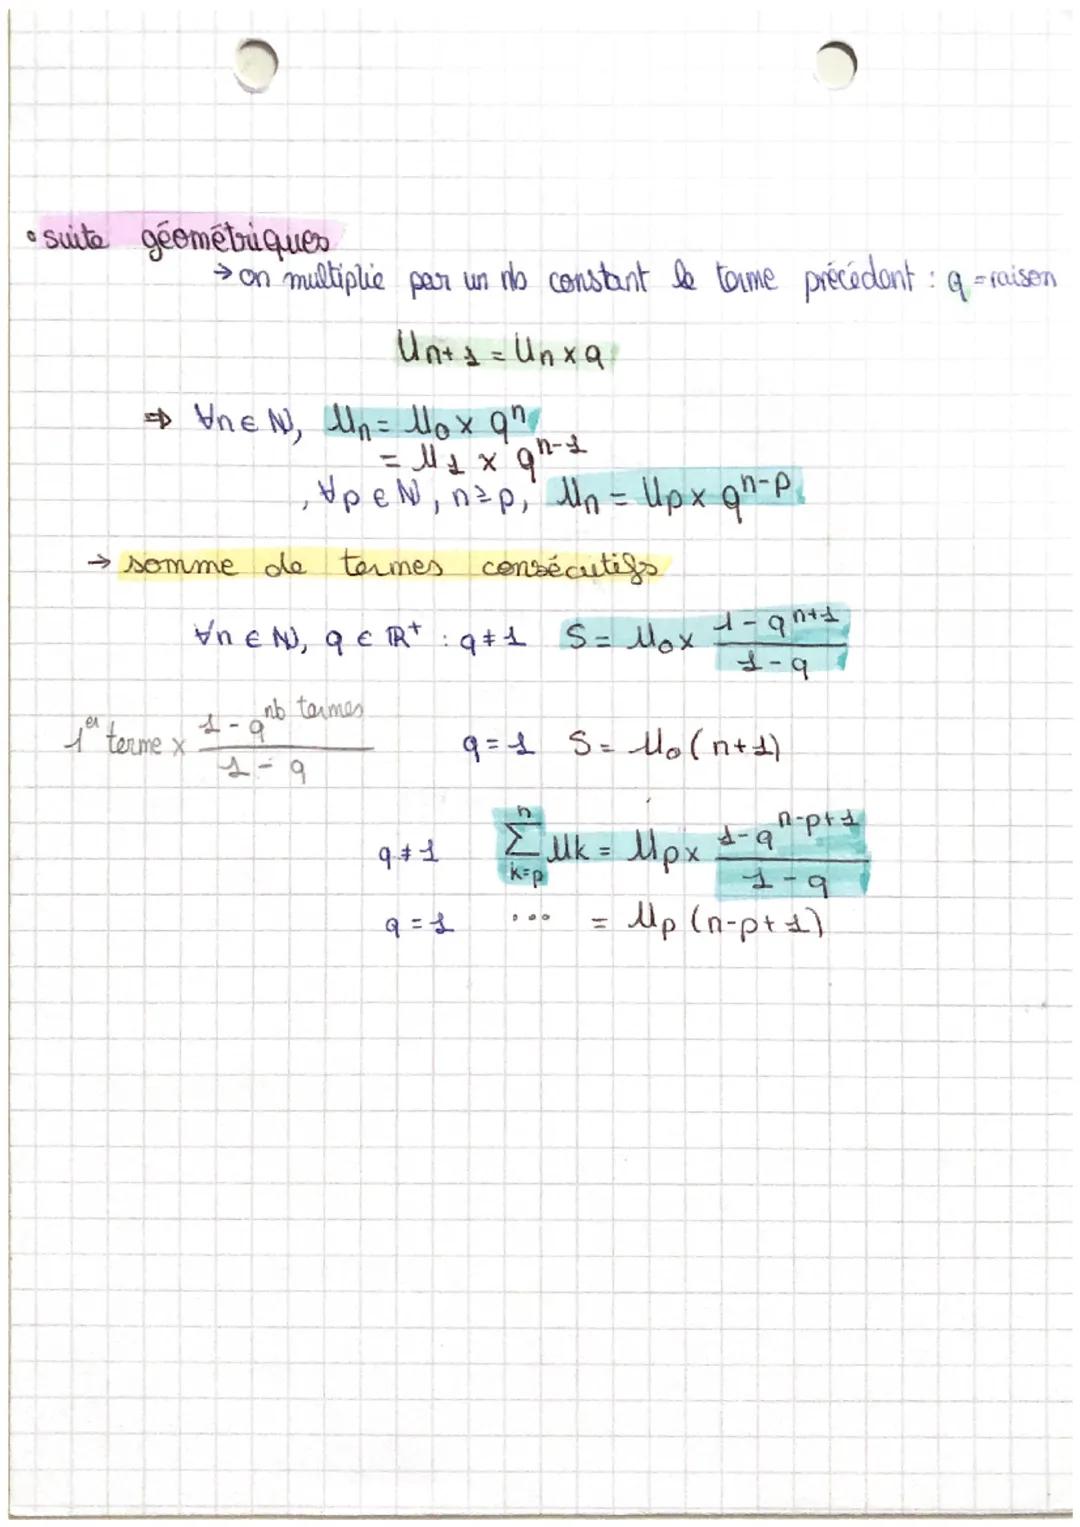 • suite géométriques
→ on multiplie par un nb constant le terme précédant : q = raison
Un+1 = Un x q
⇒ ∀n ∈ ℕ, Un = U0 x q^n
= U1 x q^n-1
, ∀p ∈ ℕ, n ≥ p, Un = Up x q^n-p
→ somme de termes consécutifs
∀n ∈ ℕ, q ∈ ℝ+ : q ≠ 1 S = U0 x (1 - q^n+1)/(1 - q)
1er terme x (1 - q^nb termes)/(1 - q)
q = 1 S = U0 (n+1)
q ≠ 1 ∑_{k=p}^{n} Uk = Up x (1 - q^n-p+1)/(1 - q)
q = 1 ... = Up (n-p+1)